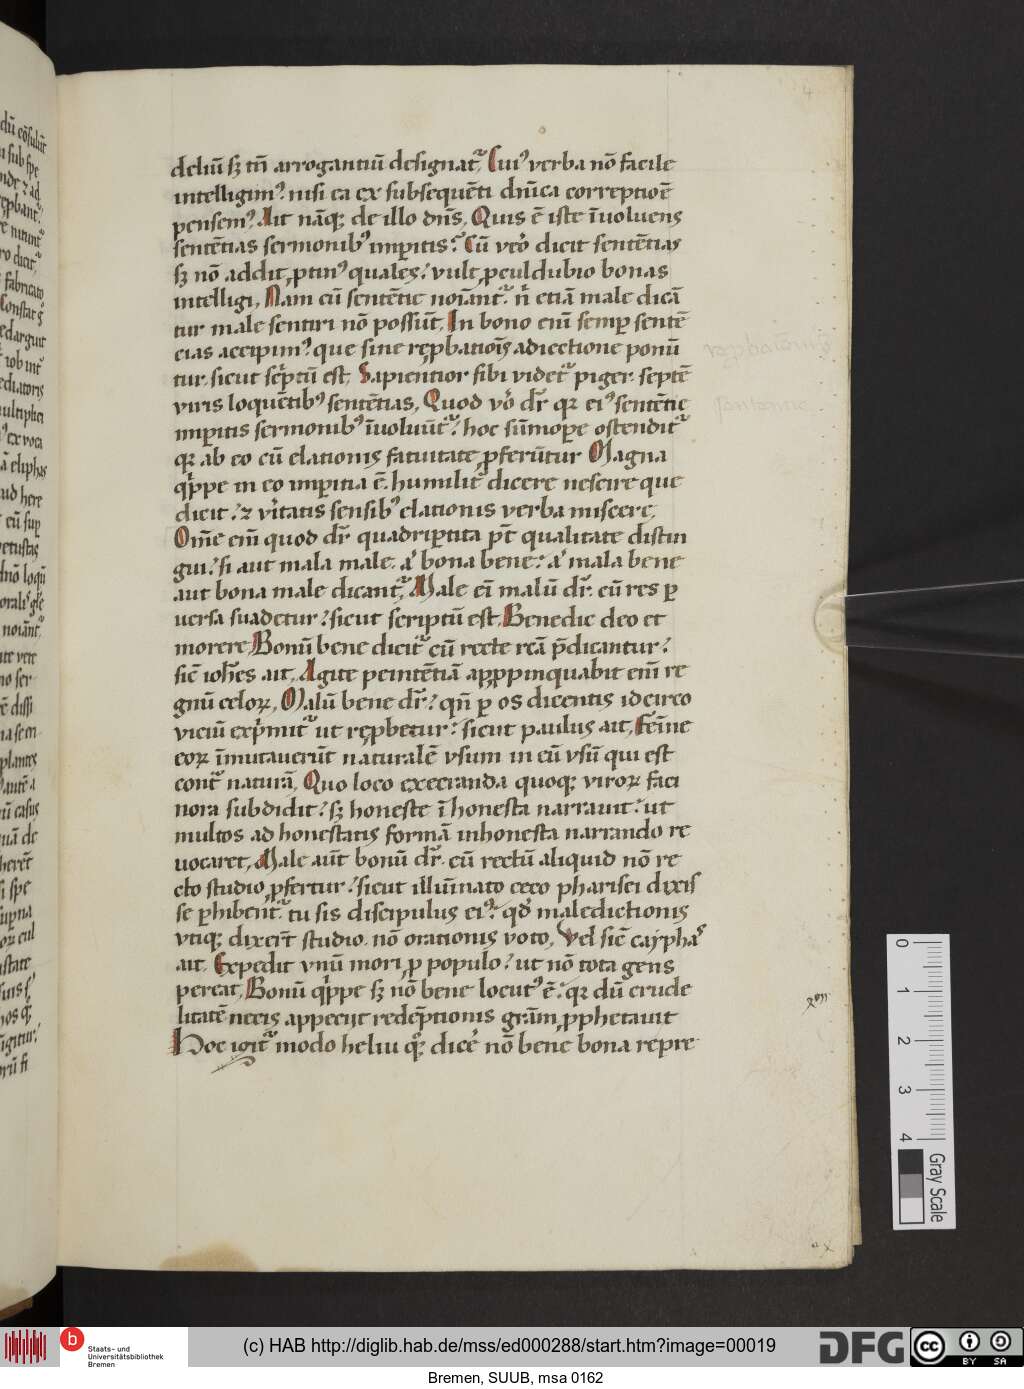 deliū sꝫ tn̄ arrogantiū designat᷑. Cuiꝰ verba nō facile
intelligimꝰ. nisi ea ex subsequēti dn̄ica correptioē
pensemꝰ. Ait nāqꝫ de illo dn̄s. Quis ē iste īuoluens
sentētias sermonibꝰ imꝑitis. Cū vero dicit sentētias
sꝫ nō addit ꝓtinꝰ quales. vult ꝓculdubio bonas
intelligi. Nam cū sentētie noīant᷑. n̄ etiā male dicā
tur male sentiri nō possūt. In bono enī semꝑ sentē
cias accipimꝰ. que sine reꝓbatiōis adiectione ponū
tur. sicut scͥptū est. Sapientior sibi videt᷑ piger. septē
viris loquētibꝰ sentētias. Quod vō dr̄ qꝛ eiꝰ sentētie
imꝑitis sermonibꝰ īuoluūt᷑. hoc sūmoꝑe ostendit᷑
qꝛ ab eo cū elationis fatuitate ꝓferūtur Magna
qͥppe in eo imꝑitia ē. humilit᷑ dicere nescire que
dicit. ⁊ vͥtatis sensibꝰ elationis verba miscere.
Om̄e em̄ quod dr̄ quadriꝑtita pt̄ qualitate distin
gui. si aut mala male. aͭ bona bene. aͭ mala bene
aut bona male dicant᷑. Male eī malū dr̄. cū res ꝑ
uersa suadetur. sicut scriptū est. Benedic deo et
morere Bonū bene dicit᷑ cū recte rcā p̄dicantur.
sic̄ ioh̄es ait. Agite penitētiā appꝓpinquabit enī re
gnū celoꝝ. Malū bene dr̄. qn̄ ꝑ os dicentis idcirco
viciū expͥmit᷑ ut reꝓbetur. sicut paulus ait. Femīe
eoꝝ īmutauerūt naturalē vsum in eū vsū qui est
cont᷑ naturā. Quo loco execranda quoqꝫ viroꝝ faci
nora subdidit. sꝫ honeste īhonesta narrauit. ut
multos ad honestatis formā inhonesta narrando re
uocaret. Male aūt bonū dr̄. cū rectū aliquid nō re
cto studio ꝓfertur. sicut illūinato ceco pharisei dixis
se ꝑhibent᷑. tu sis discipulus eiꝰ. qd̓ maledictionis
vtiqꝫ dixer̄t studio. nō orationis voto. Vel sic̄ caypha͛
ait. Expedit vnū mori ꝓ populo. ut nō tota gens
pereat. Bonū qͥppe sꝫ nō bene locutꝰ ē. qꝛ dū crude
litatē necis appeciit redēptionis grām ꝓphetauit
Hoc igit᷑ modo heliu qͦꝫ dice᷑ nō bene bona repre
0
1
2
3
4
Gray Scale
b
Staats- und
Universitätsbibliothek
Bremen
(c) HAB http://diglib.hab.de/mss/ed000288/start.htm?image=00019
DFG
cc
BY SA
Bremen, SUUB, msa 0162